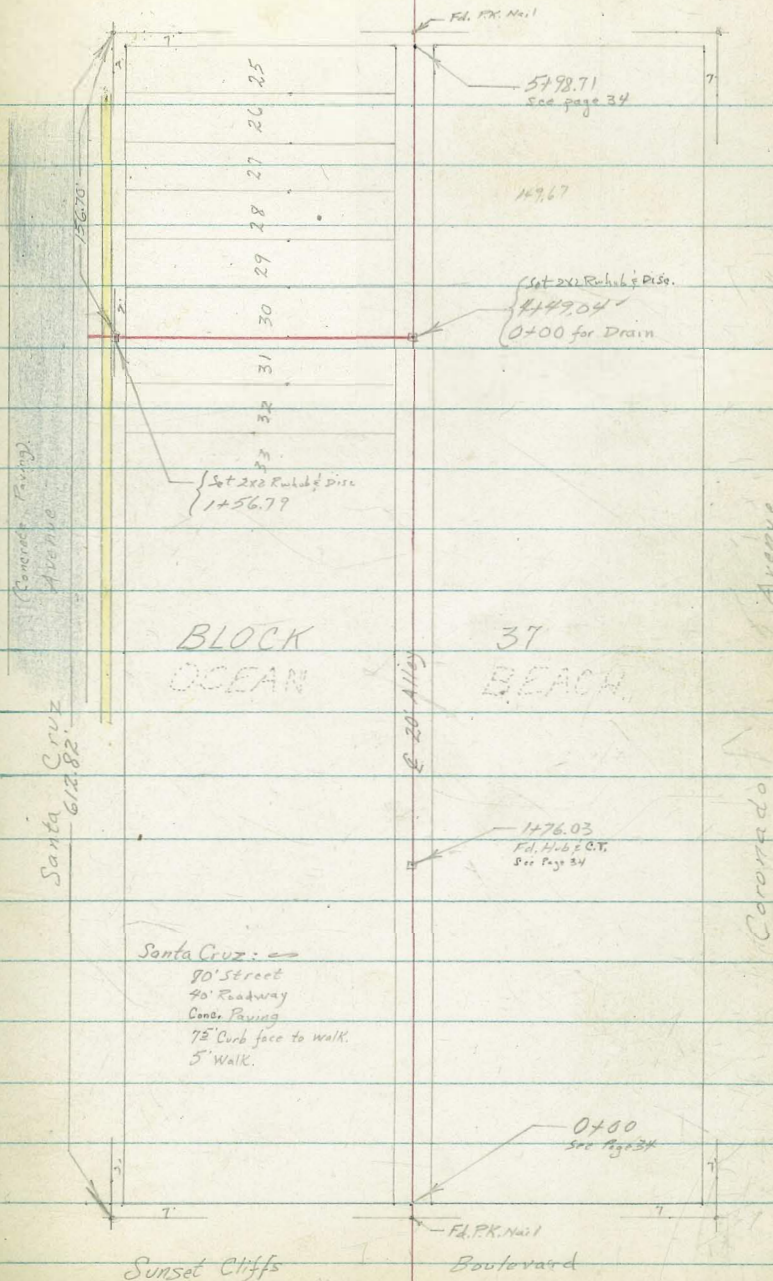 Fd. P.K. Nail
7'
7'
7'
5+98.71
See page 34
25
26
27
28
29
30
31
32
33
156.70'
149.67
2'
Set 2x2 Rwhub & Disc.
4+49.04 ✓
0+00 for Drain
Set 2x2 Rwhub & Disc
1+56.79
(Concrete Paving)
Avenue
Santa Cruz
612.82'
BLOCK 37
OCEAN BEACH
℄ 20' Alley
Avenue
Coronado
1+76.03
Fd. Hub & C.T.
See Page 34
Santa Cruz:
80' Street
40' Roadway
Conc. Paving
7.5' Curb face to walk.
5' Walk.
0+00
See Page 34
7'
7'
7
7'
Fd. P.K. Nail
Sunset Cliffs Boulevard